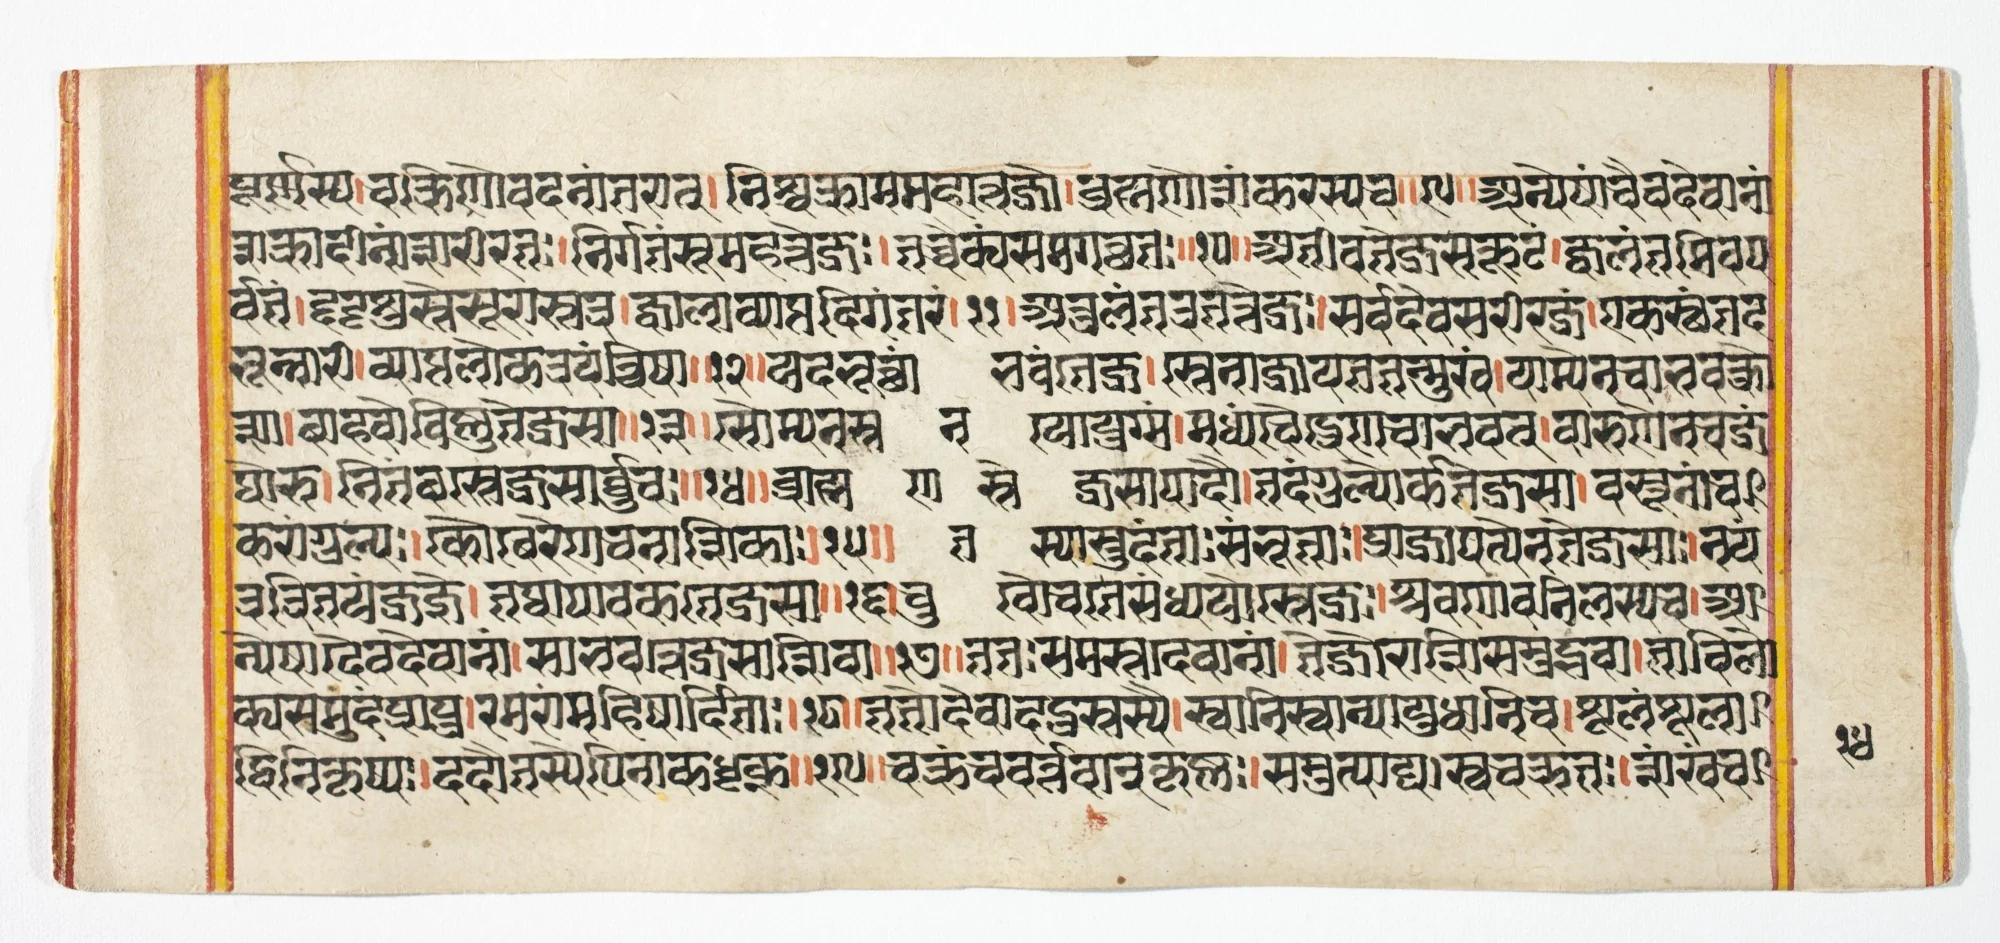 पूर्णस्य। चक्रिणो वदनांतरात्। निश्चक्राममहात्तेजो। ब्रह्मणोशंकरस्यच॥९॥अन्येषांचैवदेवानां
शक्रादीनांशरीरतः।निर्गतंसूमहत्तेजः।तच्चैक्यंसमगच्छतः॥१०॥अतीवतेजसकूटं।ज्वलंतमिवप
र्वतं।ददृशुस्तेसूरास्तत्र।ज्वालाव्याप्तदिगंतरं।११।अतुलंतत्रतत्तेजः।सर्वदेवसरीरजं।एकस्थंतद
भून्नारी।व्याप्तलोकत्रयंत्विषा॥१२॥यदभूच्छां भवंतेज।स्तेनाजायततन्मुखं।याम्येनचाभवके
शा।बाहवोविष्णुतेजसा॥१३॥सौम्येनस्त न योयुग्मं।मध्यंचैंद्रेणचाभवत्।वारुणेनचजं
घोरु।नितंबस्तेजसार्भुवः॥१४॥ब्राह्म णा स्ते जसापादौ।तदंगुल्योर्कतेजसा।वसूनांच
करांगुल्यः।कौबेरेणचनाशिका।१५॥ त स्यास्तुदंताःसंभूताः।प्राजापत्येनतेजसाः।नयं
त्रत्रितयंजज्ञे।तथापावकतेजसा॥१६।भ्रु वोचतेसंध्ययोस्तेजः।श्रवणावनिलस्यच।अ
न्येषांदेवदेवानां।साभवात्तेजसाशिवा॥१७॥ततःसमस्तादेवानां।तेजोराशिसमुद्भवा।तांविलो
क्यसमुदंप्रापु।रमरांमहिषार्दिताः।१८॥ततोदेवाददुस्तस्यै।स्वानिस्वान्यायुधानिच।शूलंशूला
द्विनिकृष्यः।ददौतस्यैपिनाकधृक्॥१९॥चक्रंचदत्तवान्कृष्णः।समुत्पाद्यास्वचक्रतः।शंखंच
१४